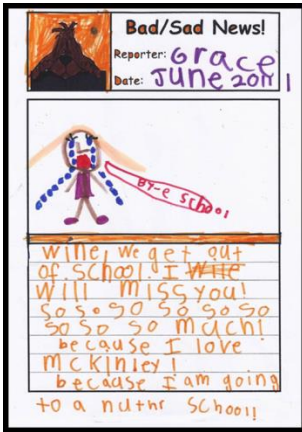 Bad/Sad News!
Reporter: Grace
Date: June 2011
BY-e School
wine, we get out
of school. I wile
will miss you!
So so so so so so so
so so so much!
because I love
mckinley!
because I am going
to a nuthr school!